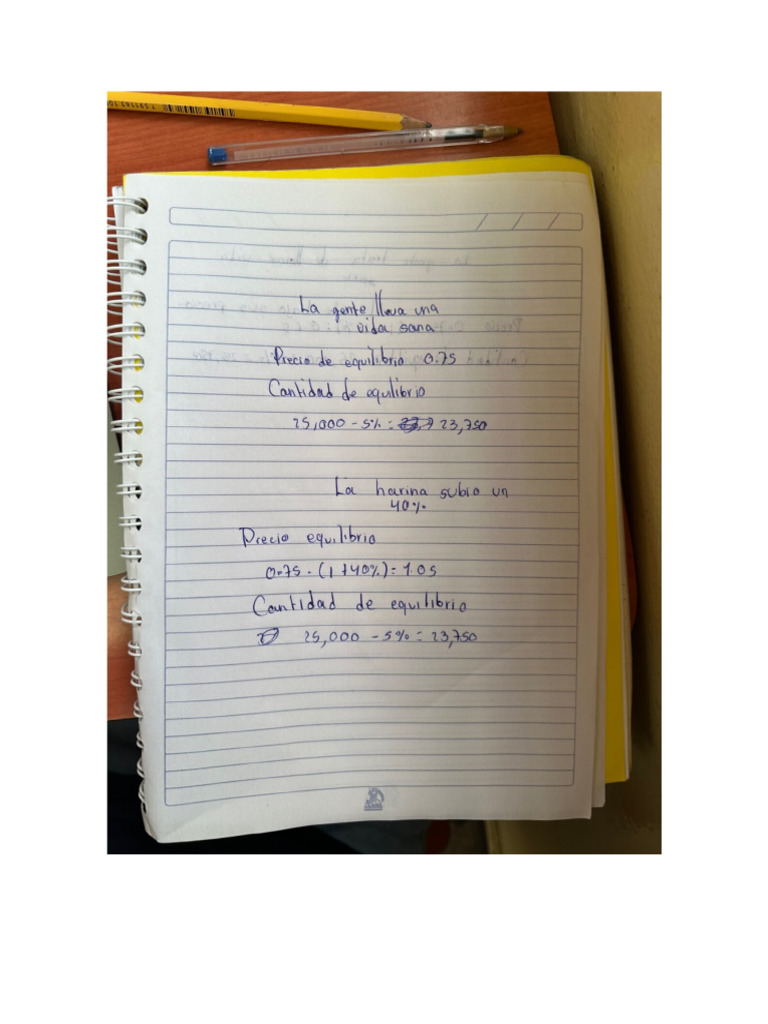 La gente lleva una
vida sana
Precio de equilibrio 0.75
Cantidad de equlibrio
25,000 - 5% = 23,750
La harina subio un
40%
Precio equilibrio
0.75 . (1 + 40%) = 1.05
Cantidad de equilibrio
25,000 - 5% = 23,750